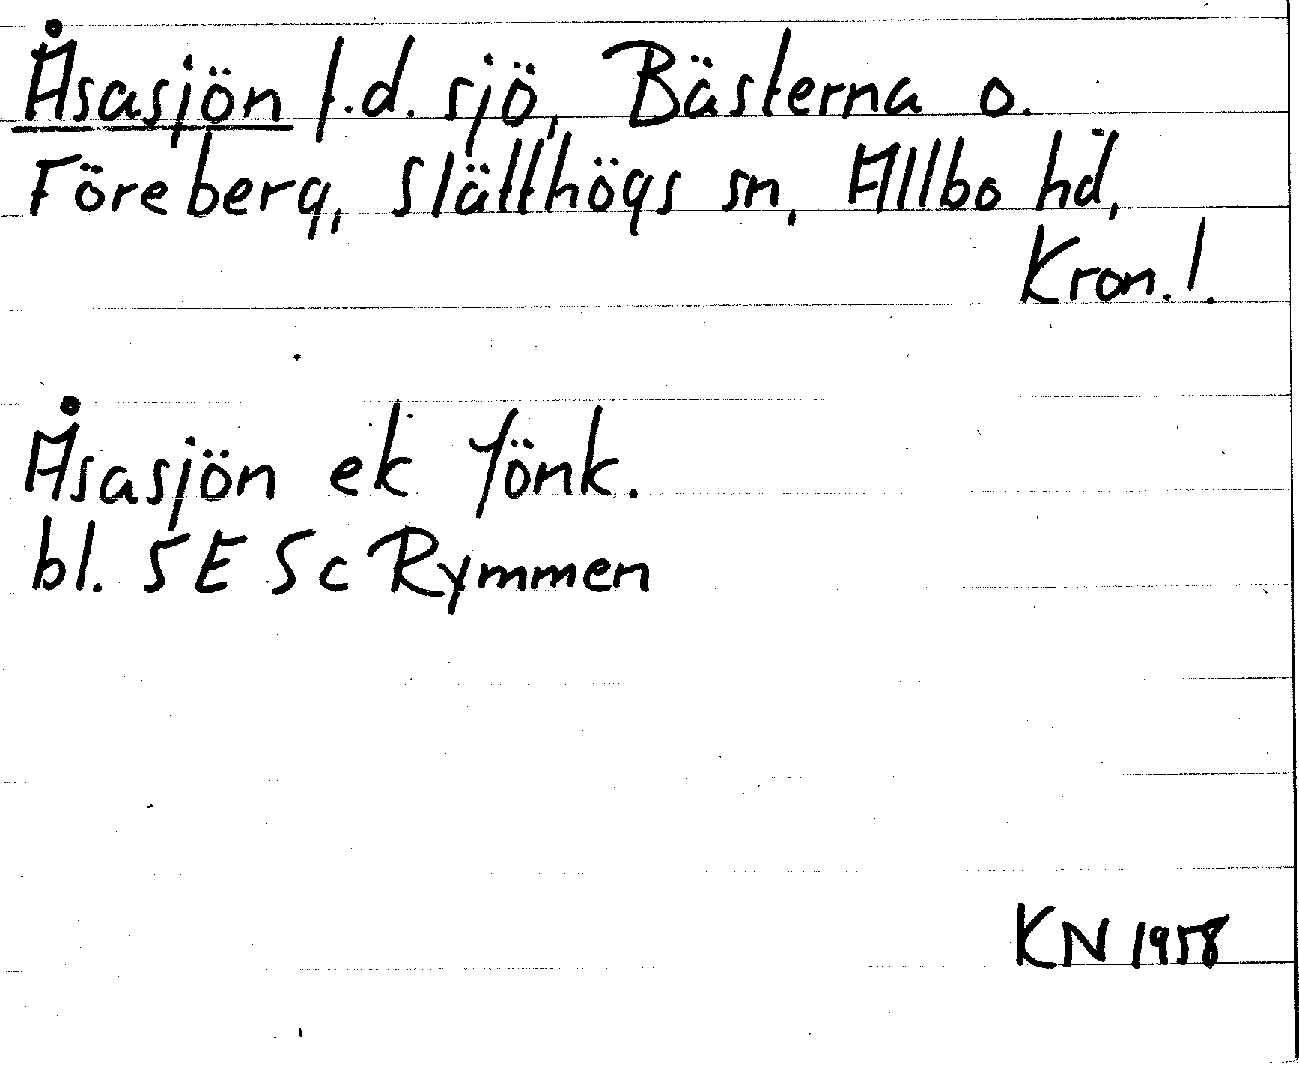 Åsasjön f.d. sjö, Bästerna o.
Föreberg, Slätthögs sn, Allbo hd,
Kron. l.
Åsasjön ek Jönk.
bl. 5 E S c Rymmen
KN 1958